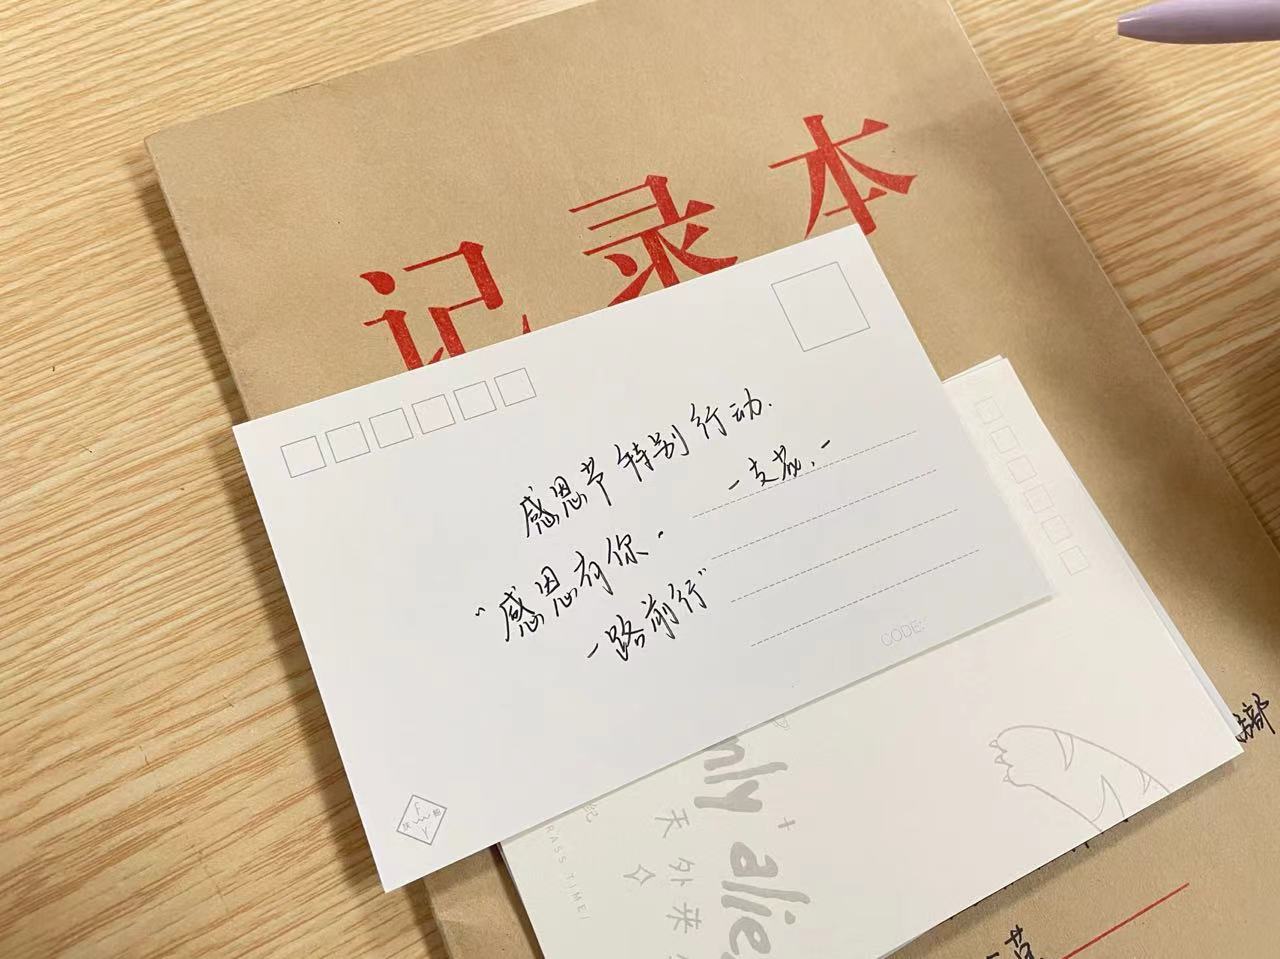 记录本
感恩节特别行动.
"感恩有你.
一路前行"
CODE:
nly alie
天外来
RASS TIME/
部